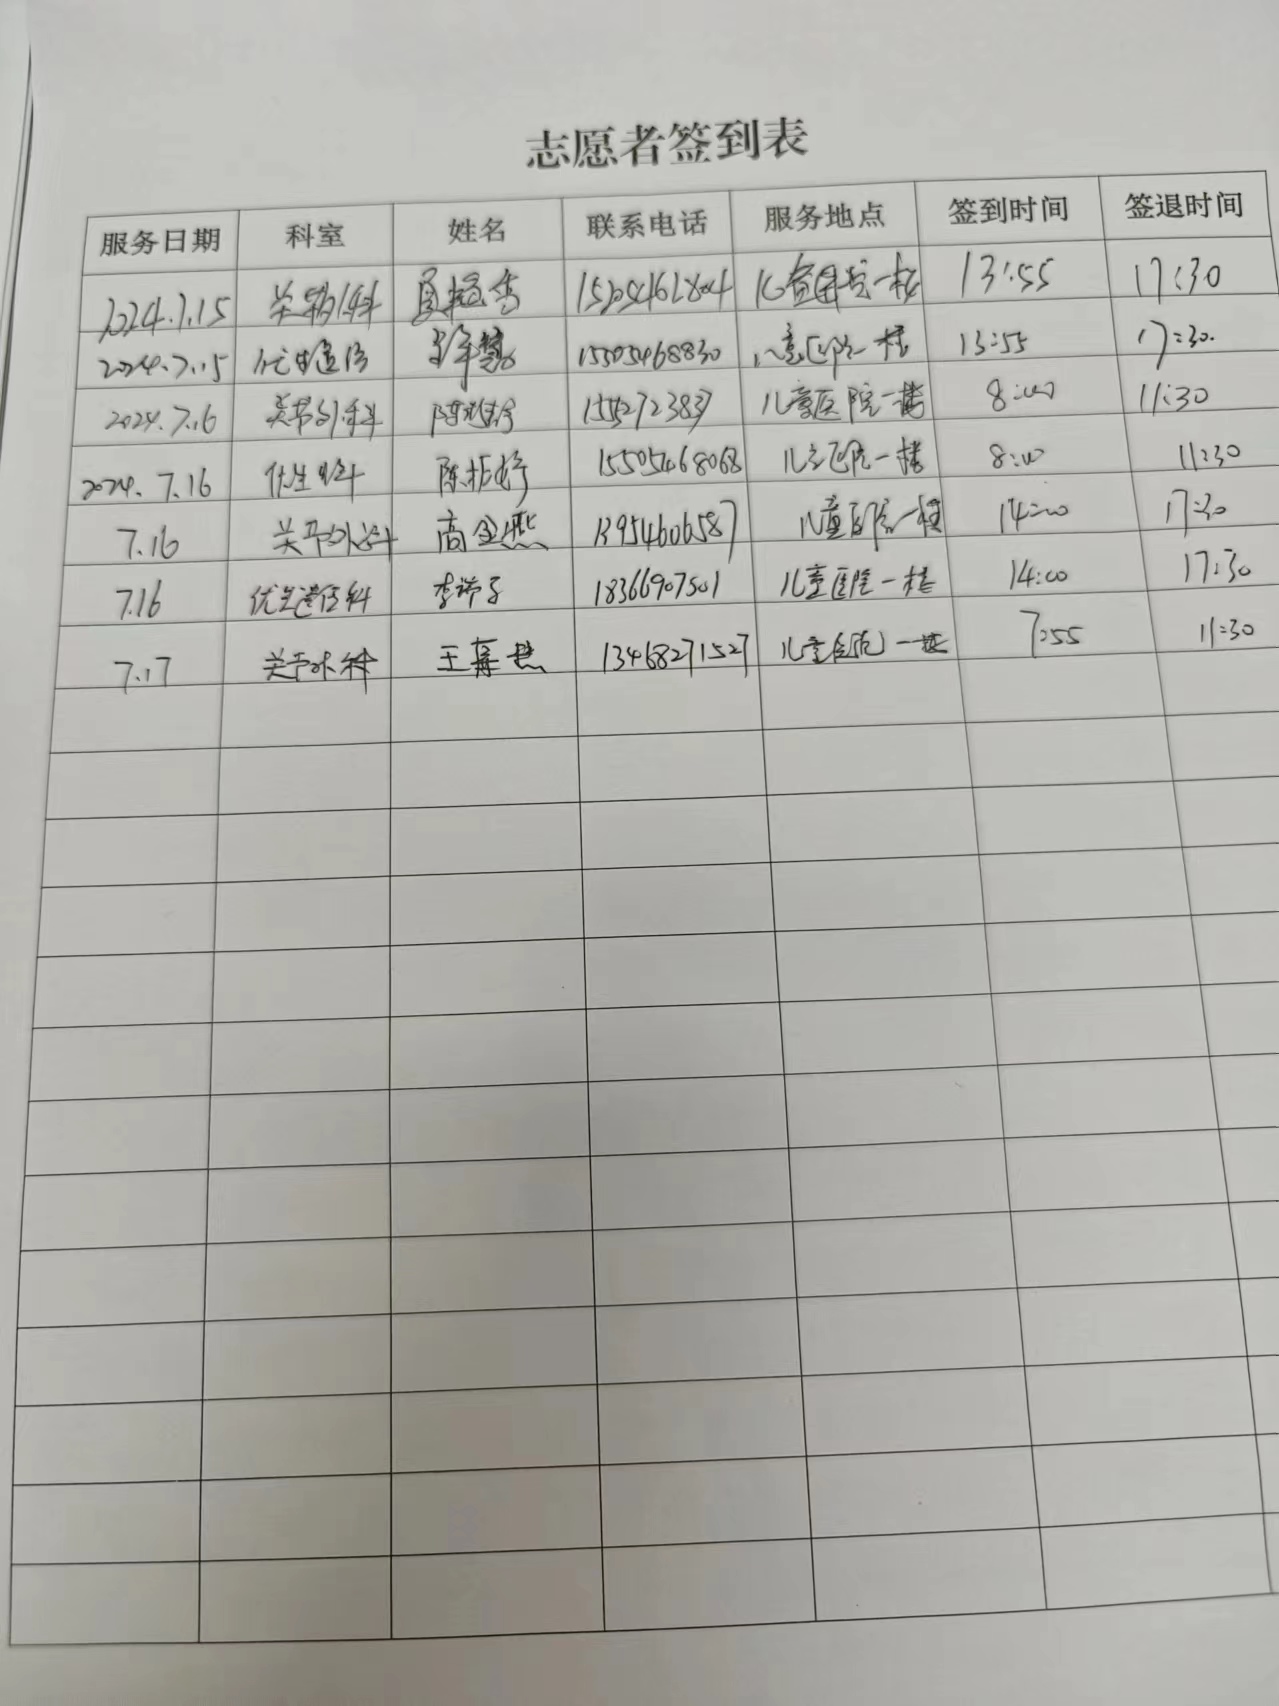 志愿者签到表
服务日期 科室 姓名 联系电话 服务地点 签到时间 签退时间
2024.7.15 儿童医院一楼 13:55 17:30
2024.7.15 优生遗传 15505468830 儿童医院一楼 13:55 17:30.
2024.7.16 关节外科 儿童医院一楼 8:00 11:30
2024.7.16 优生 15505468068 儿童医院一楼 8:00 11:30
7.16 关节外科 高金燕 13954606587 儿童医院一楼 14:00 17:30
7.16 优生遗传科 18366907501 儿童医院一楼 14:00 17:30
7.17 关节外科 王 13468271527 儿童医院一楼 7:55 11:30